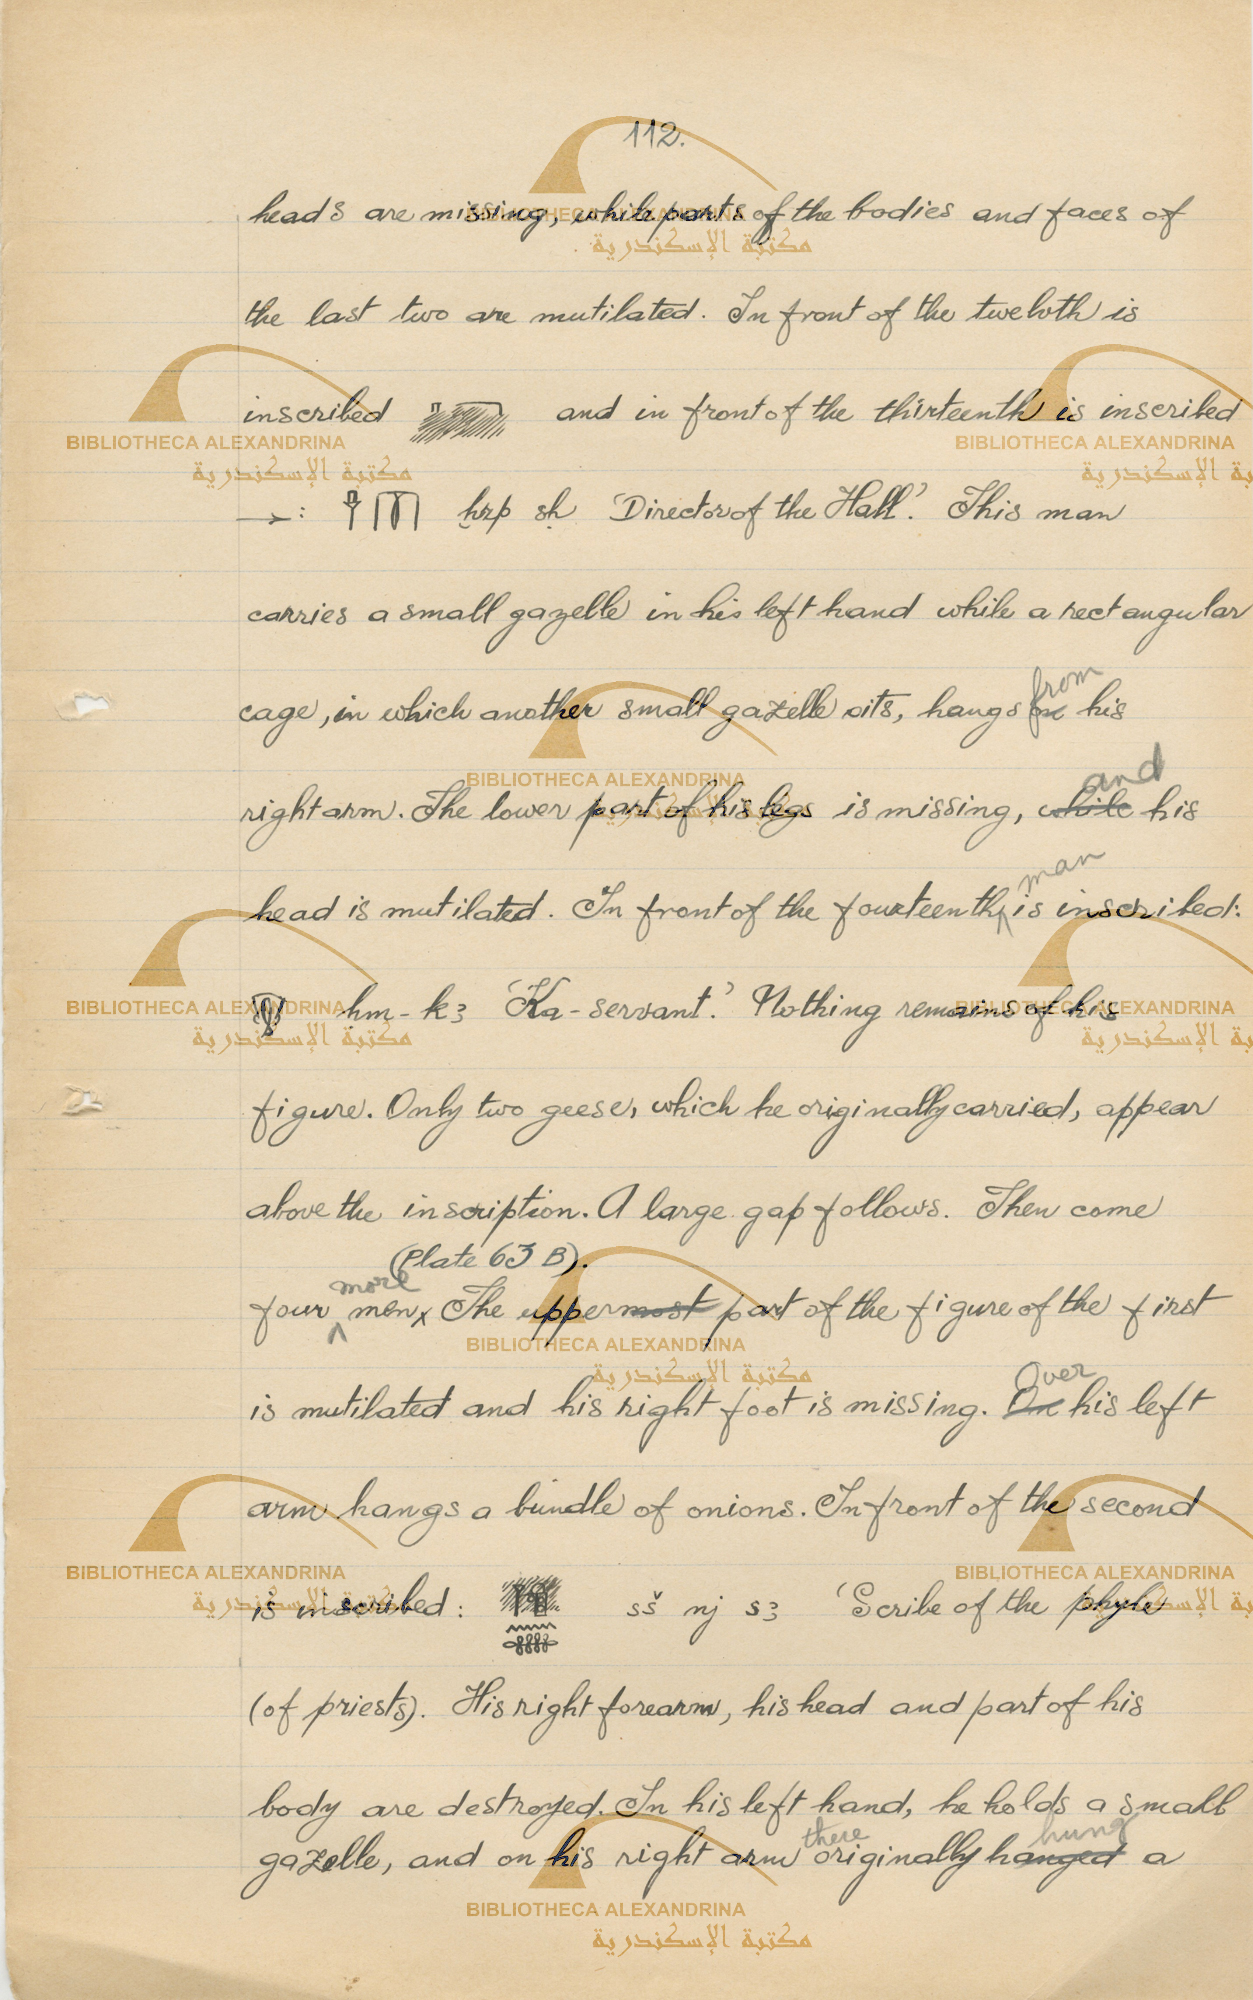 112.
heads are missing, while parts of the bodies and faces of
the last two are mutilated. In front of the twelvth is
inscribed and in front of the thirteenth is inscribed
→: ḫrp sḥ 'Director of the Hall'. This man
carries a small gazelle in his left hand while a rectangular
cage, in which another small gazelle sits, hangs on from his
right arm. The lower part of his legs is missing, while and his
head is mutilated. In front of the fourteenth man is inscribed:
ḥm-kꜣ 'Ka-servant.' Nothing remains of his
figure. Only two geese, which he originally carried, appear
above the inscription. A large gap follows. Then come
(Plate 63 B).
four more men x The uppermost part of the figure of the first
is mutilated and his right foot is missing. On Over his left
arm hangs a bundle of onions. In front of the second
is inscribed: sš nj sꜣ 'Scribe of the phyle
(of priests). His right forearm, his head and part of his
body are destroyed. In his left hand, he holds a small
gazelle, and on his right arm there originally hanged hung a
BIBLIOTHECA ALEXANDRINA
مكتبة الإسكندرية